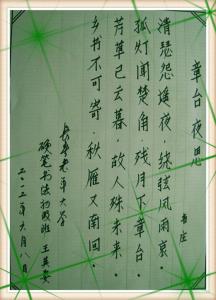 章台夜思
韦庄
清瑟怨遥夜，绕弦风雨哀。
孤灯闻楚角，残月下章台。
芳草已云暮，故人殊未来。
乡书不可寄，秋雁又南回。
老年大学
硬笔书法初级班 王英
二〇一二年六月八日